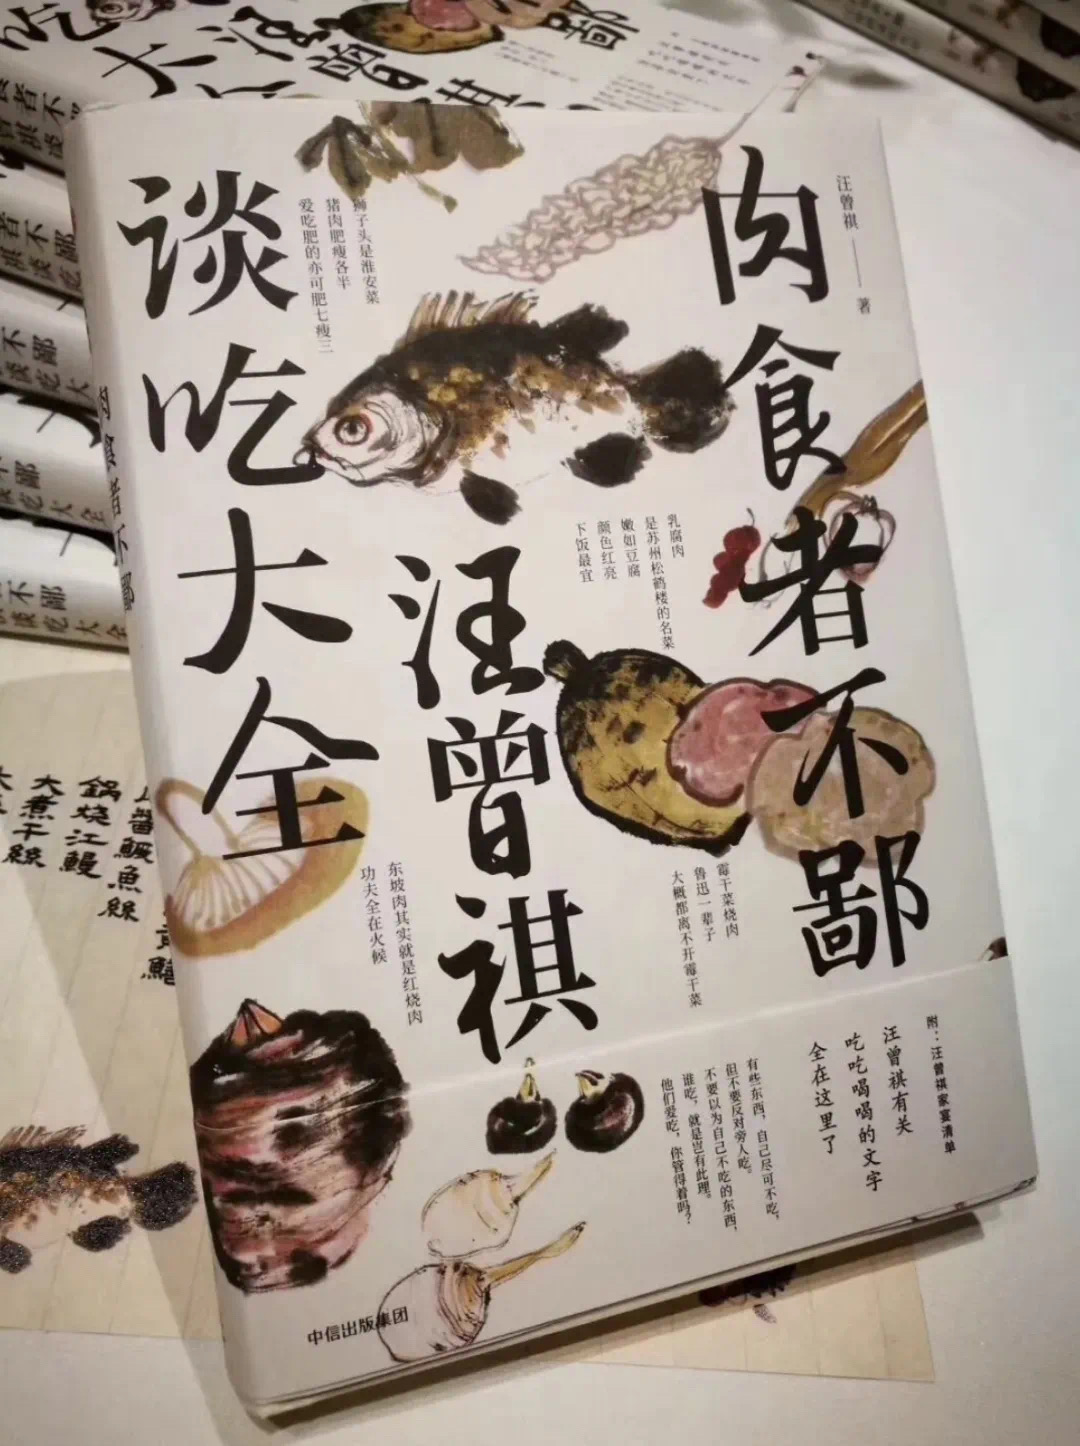 肉食者不鄙
汪曾祺
谈吃大全
汪曾祺 著
狮子头是淮安菜
猪肉肥瘦各半
爱吃肥的亦可肥七瘦三
乳腐肉
是苏州松鹤楼的名菜
嫩如豆腐
颜色红亮
下饭最宜
霉干菜烧肉
鲁迅一辈子
大概都离不开霉干菜
东坡肉其实就是红烧肉
功夫全在火候
附：汪曾祺家宴清单
汪曾祺有关
吃吃喝喝的文字
全在这里了
有些东西，自己尽可不吃，
但不要反对旁人吃。
不要以为自己不吃的东西，
谁吃，就是岂有此理。
他们爱吃，你管得着吗？
中信出版集团
鱖魚絲
鍋燒江鰻
大煮干絲